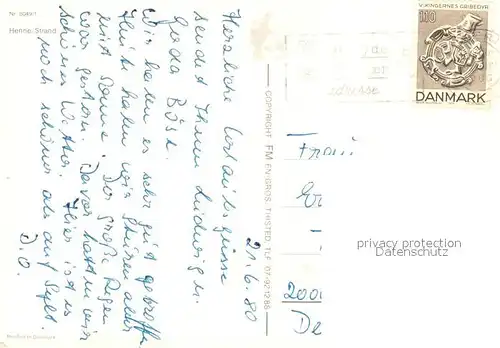 Nr. 5049/1
Henne Strand
21.6.80
Herzliche Urlaubsgrüsse
sendet Ihnen Ludwig u.
Gerda Böse.
Wir haben es sehr gut getroffen
Heute haben wir Sturm aber
mit Sonne. Der große Regen
war gestern. Davor hatten wir
schönes Wetter. Hier ist es
noch schöner als auf Sylt.
D. O.
COPYRIGHT FM EN-GROS, THISTED TLF 07-921286
VIKINGERNES GRIBEDYR
110
DANMARK
adresse
Frau
2000
De
privacy protection
Datenschutz